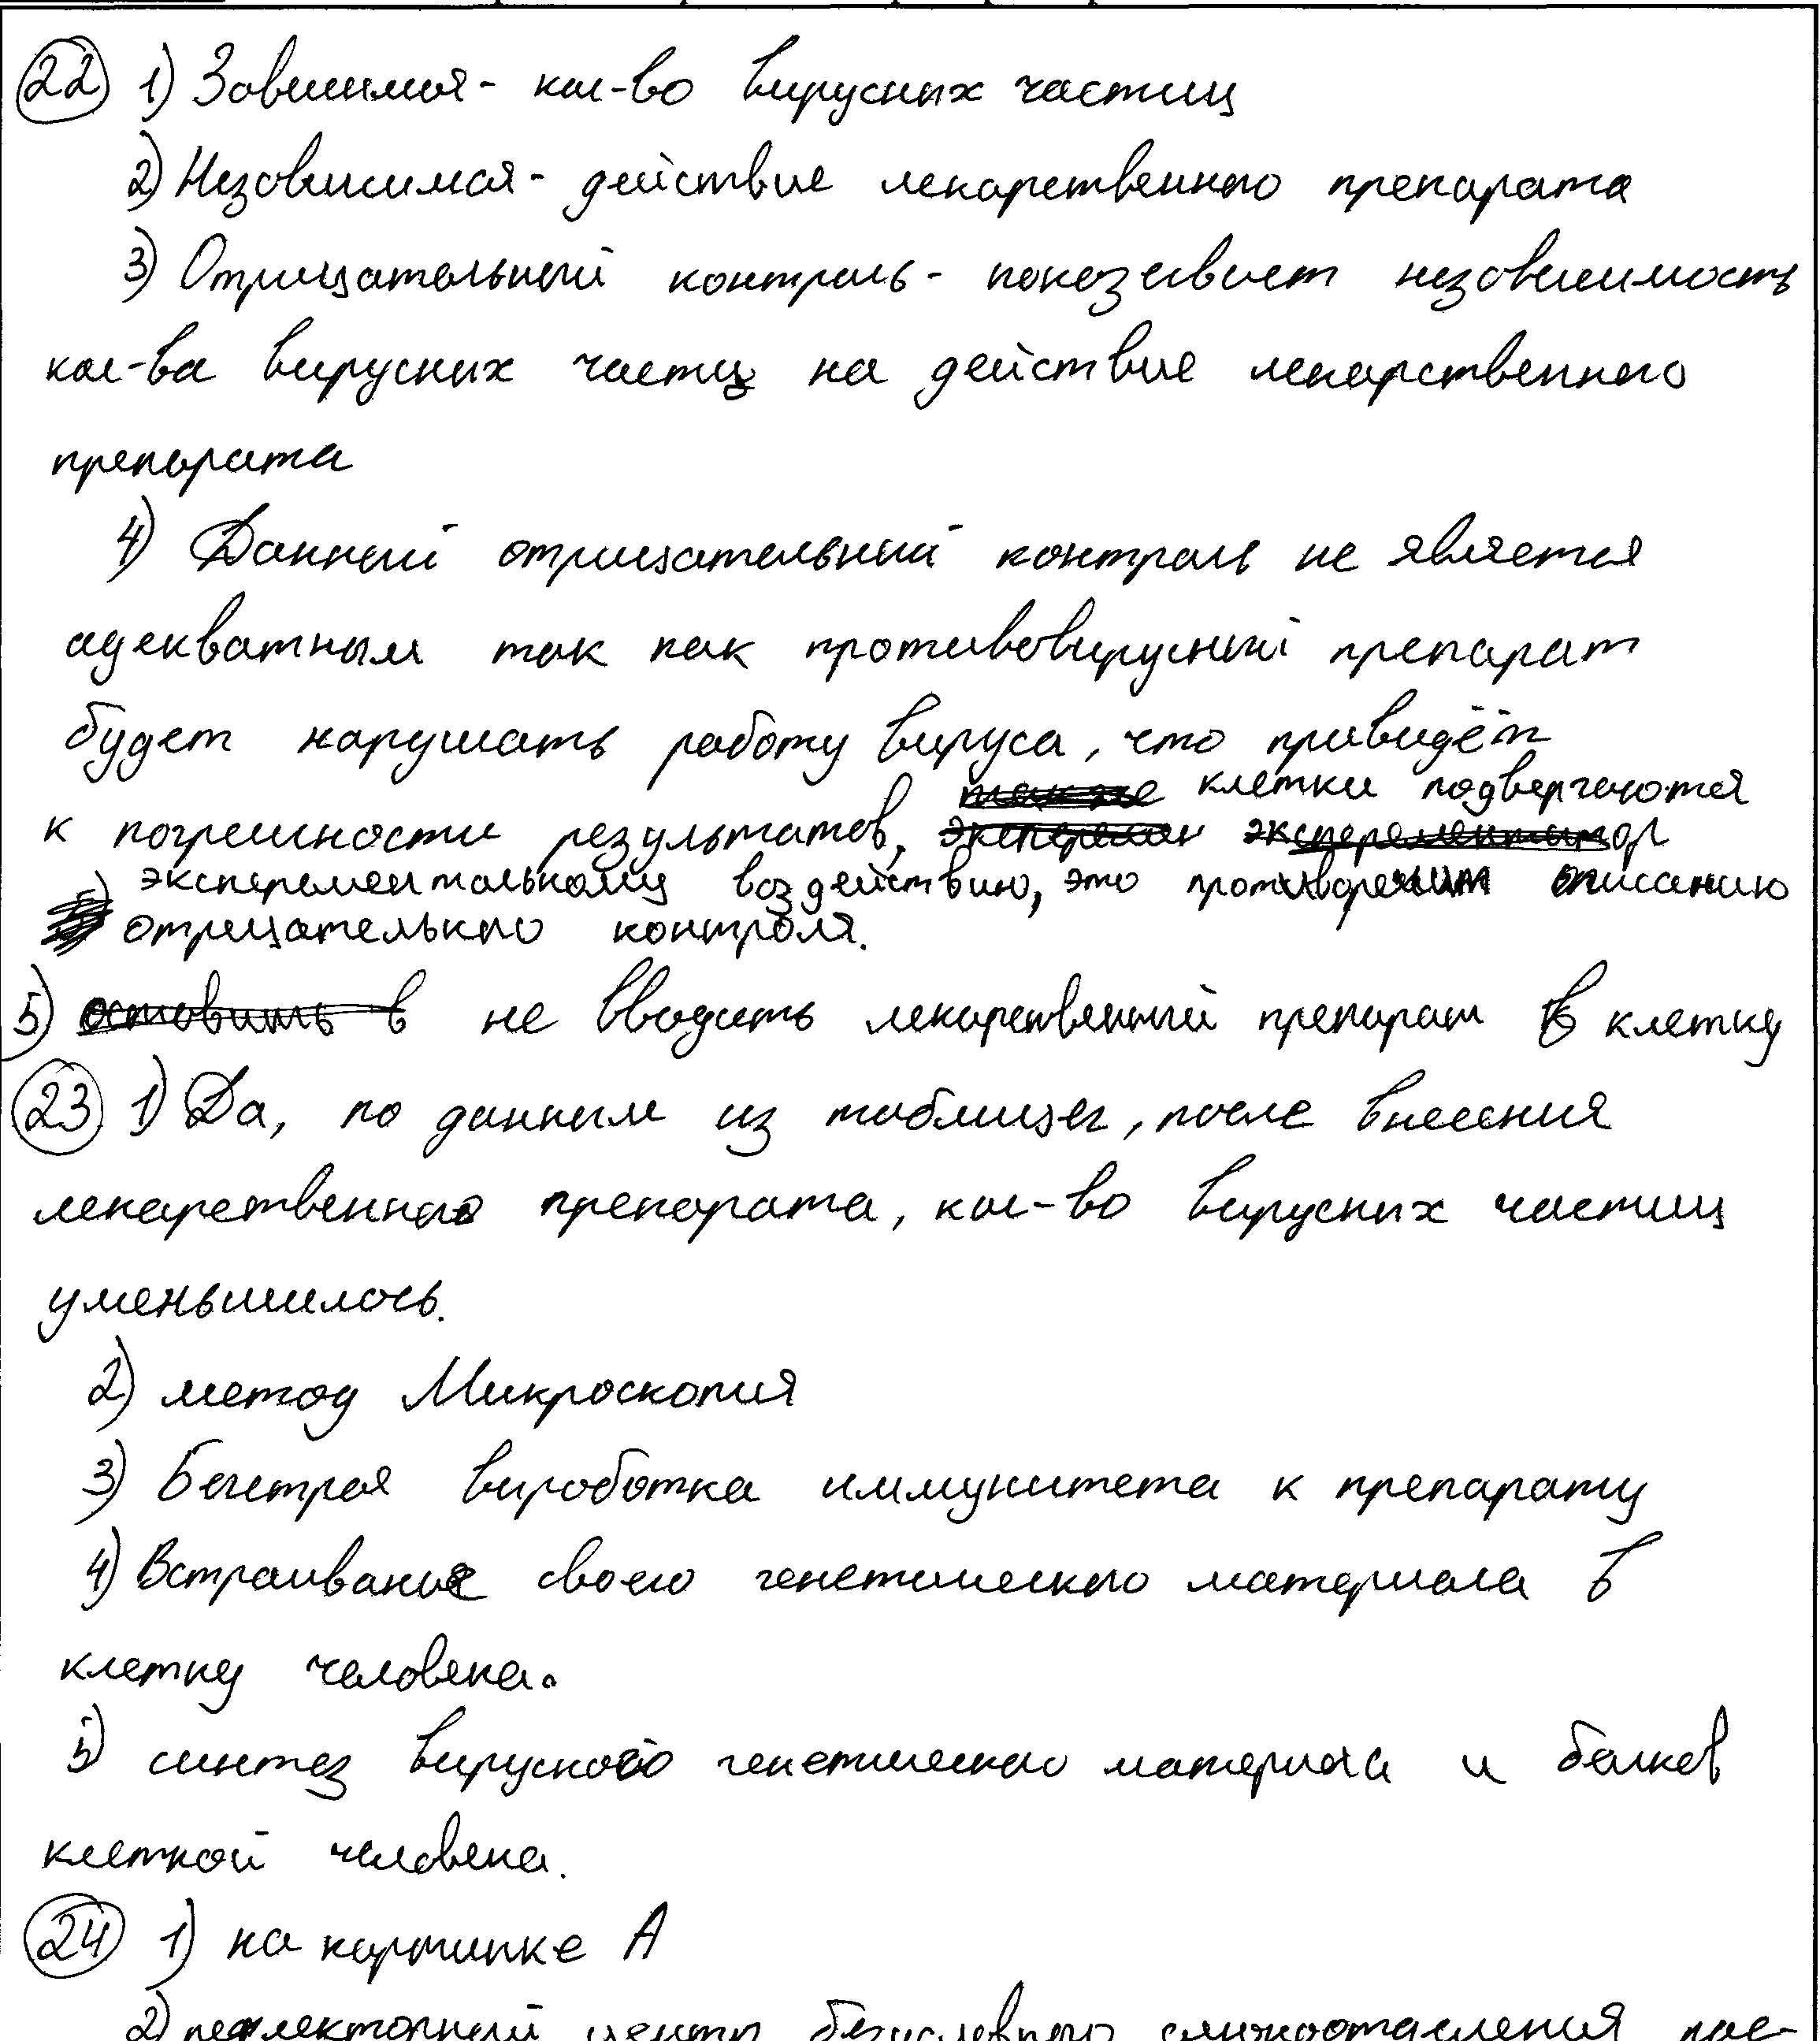 22 1) Зависимая - кол-во вирусных частиц
2) Независимая - действие лекарственного препарата
3) Отрицательный контроль - показывает независимость
кол-ва вирусных частц на действие лекарственного
препарата
4) Данный отрицательный контроль не является
адекватным так как противовирусный препарат
будет нарушать работу вируса, что приведёт
клетки подвергаются
к погрешности результатов,
эксперементальному воздействию, это противоречит описанию
отрицательного контроля.
5) не вводить лекарственный препарат в клетку
23 1) Да, по данным из таблицы, после внесения
лекарственного препарата, кол-во вирусных частиц
уменьшилось.
2) метод Микроскопия
3) Быстрая выработка иммунитета к препарату
4) Встраивание своего генетического материала в
клетку человека.
5) синтез вирусного генетического материала и белков
клеткой человека.
24 1) на картинке А
2) центр безусловного слюноотделения